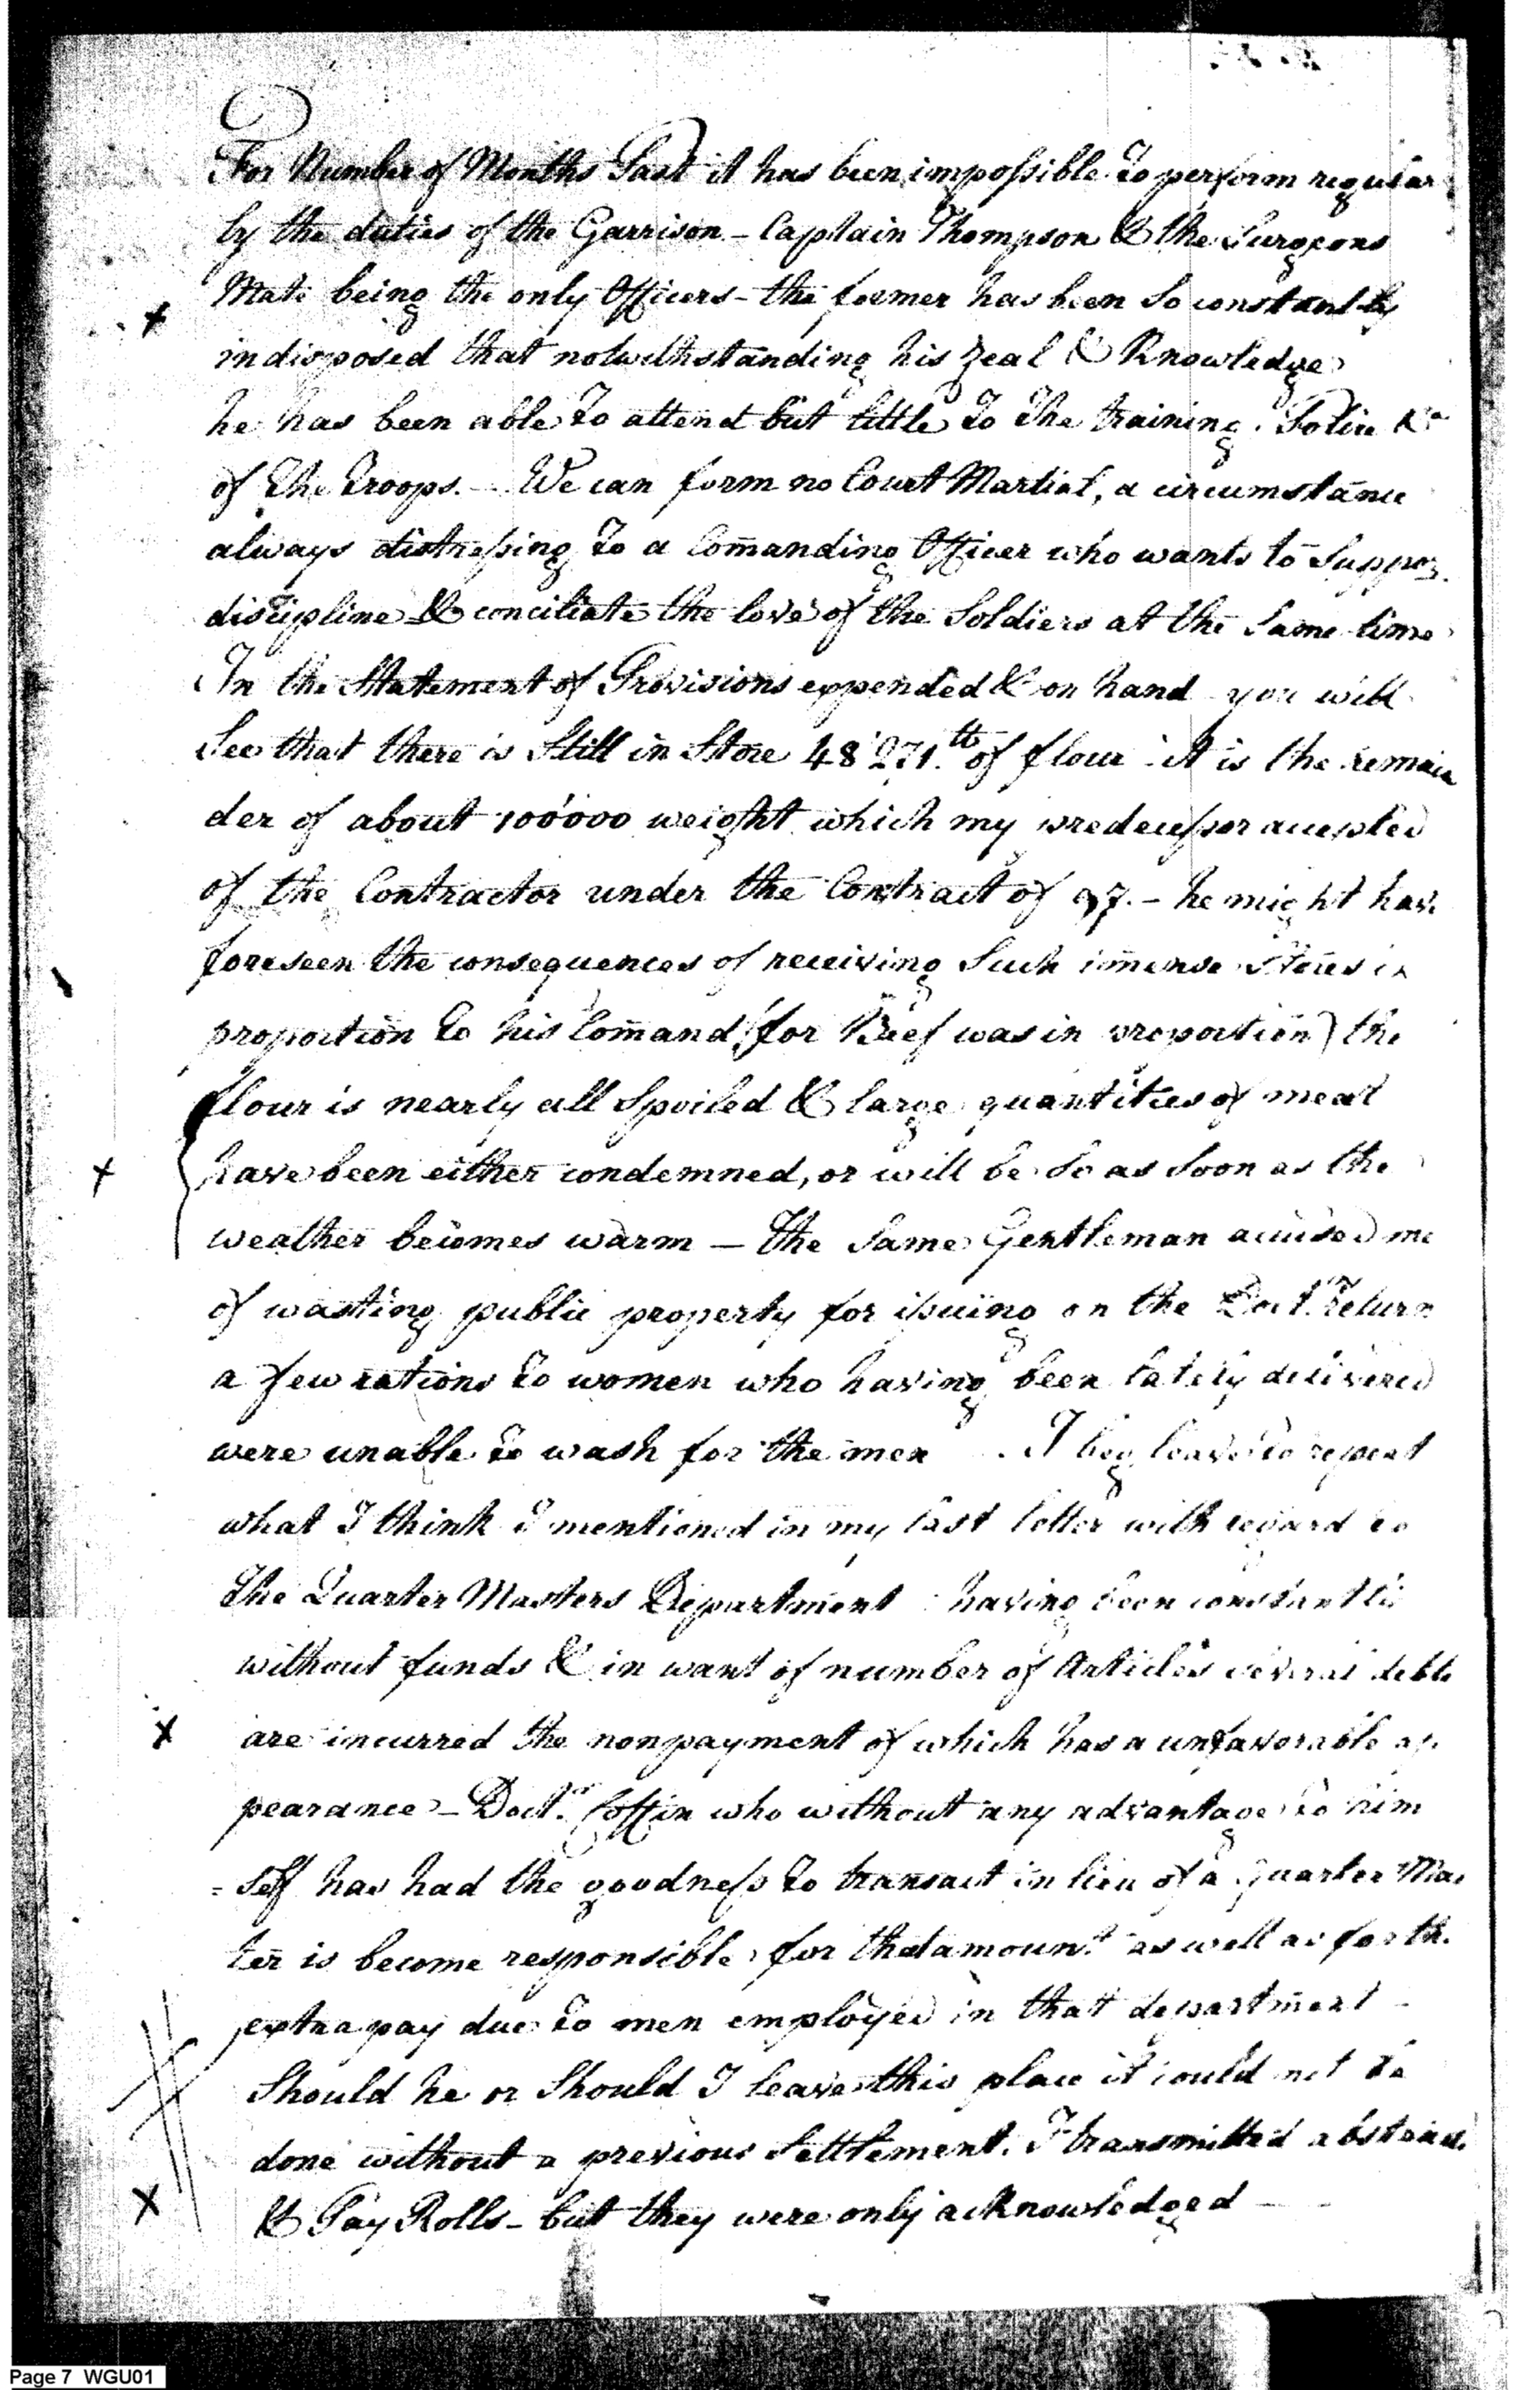 For Number of Months Past it has been impossible to perform regular
ly the duties of the Garrison - Captain Thompson & the Surgeons
Mate being the only Officers - the former has been so constantly
indisposed that notwithstanding his zeal & Knowledge
he has been able to attend but little to the training, Police &c
of the troops. - We can form no Court Martial, a circumstance
always distressing to a Comanding Officer who wants to Suppor
discipline & conciliate the love of the Soldiers at the Same time
In the Statement of Provisions expended & on hand you will
See that there is Still in Store 48'271 lb of flour it is the remain
der of about 100'000 weight which my predecessor accepted
of the Contractor under the Contract of 97. - he might have
foreseen the consequences of receiving Such imense Stores in
proportion to his Comand (for Beef was in proportion) the
flour is nearly all Spoiled & large quantities of meat
have been either condemned, or will be So as Soon as the
weather becomes warm - The Same Gentleman accused me
of wasting public property for issuing on the Doct.rs return
a few rations to women who having been lately delivered
were unable to wash for the men . I beg leave to repeat
what I think I mentioned in my last letter with regard to
the Quarter Masters Department having been constantly
without funds & in want of number of Articles several debts
are incurred the nonpayment of which has a unfavorable ap
pearance - Doct.r Coffin who without any advantage to him
=self has had the goodness to transact in lieu of a Quarter Mas
ter is become responsible for that amount as well as for the
extra pay due to men employed in that department -
Should he or Should I leave this place it could not be
done without a previous Settlement. I transmitted abstract
& Pay Rolls - but they were only acknowledged -
Page 7 WGU01